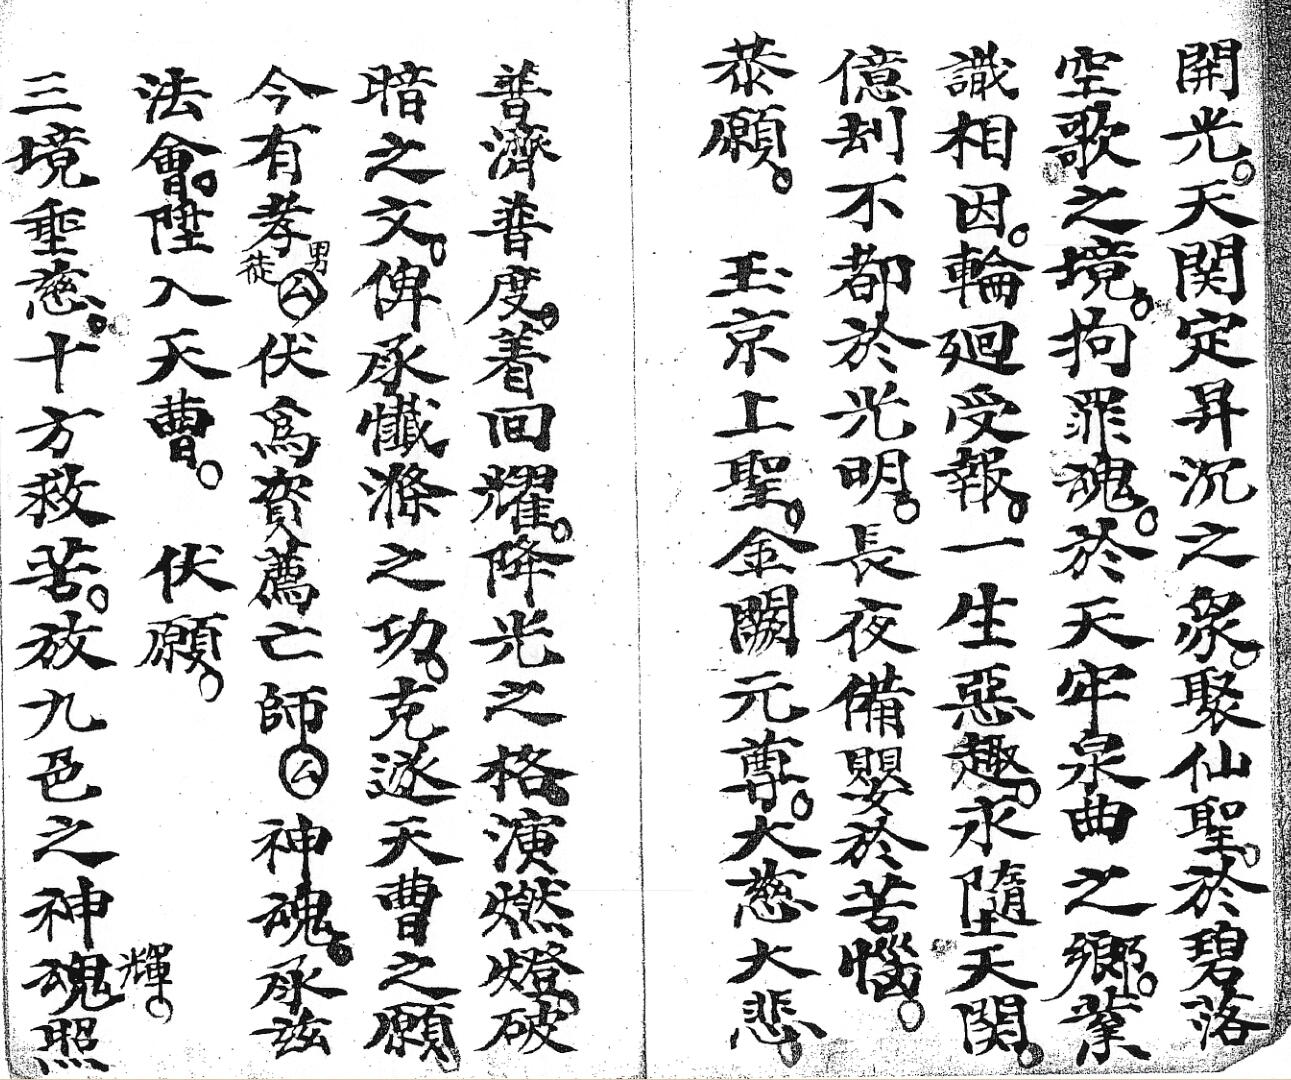 開光。天関定昇沉之衆。聚仙聖。於碧落
空歌之境。拘罪魂。於天牢泉曲之鄉。業
識相因。輪廻受報。一生惡趣。永墮天関。
億刼不都於光明。長夜備嬰於苦惱。
恭願。　玉京上聖。金闕元尊。大慈大悲。
普濟普度。着回耀。降光之格。演燃燈破
暗之文。俾承懺滌之功。克遂天曹之願。
今有孝男徒厶伏為賫薦亡師厶神魂。承兹
法會。陞入天曹。　伏願。
三境垂慈。十方救苦。放九色之神魂照輝。